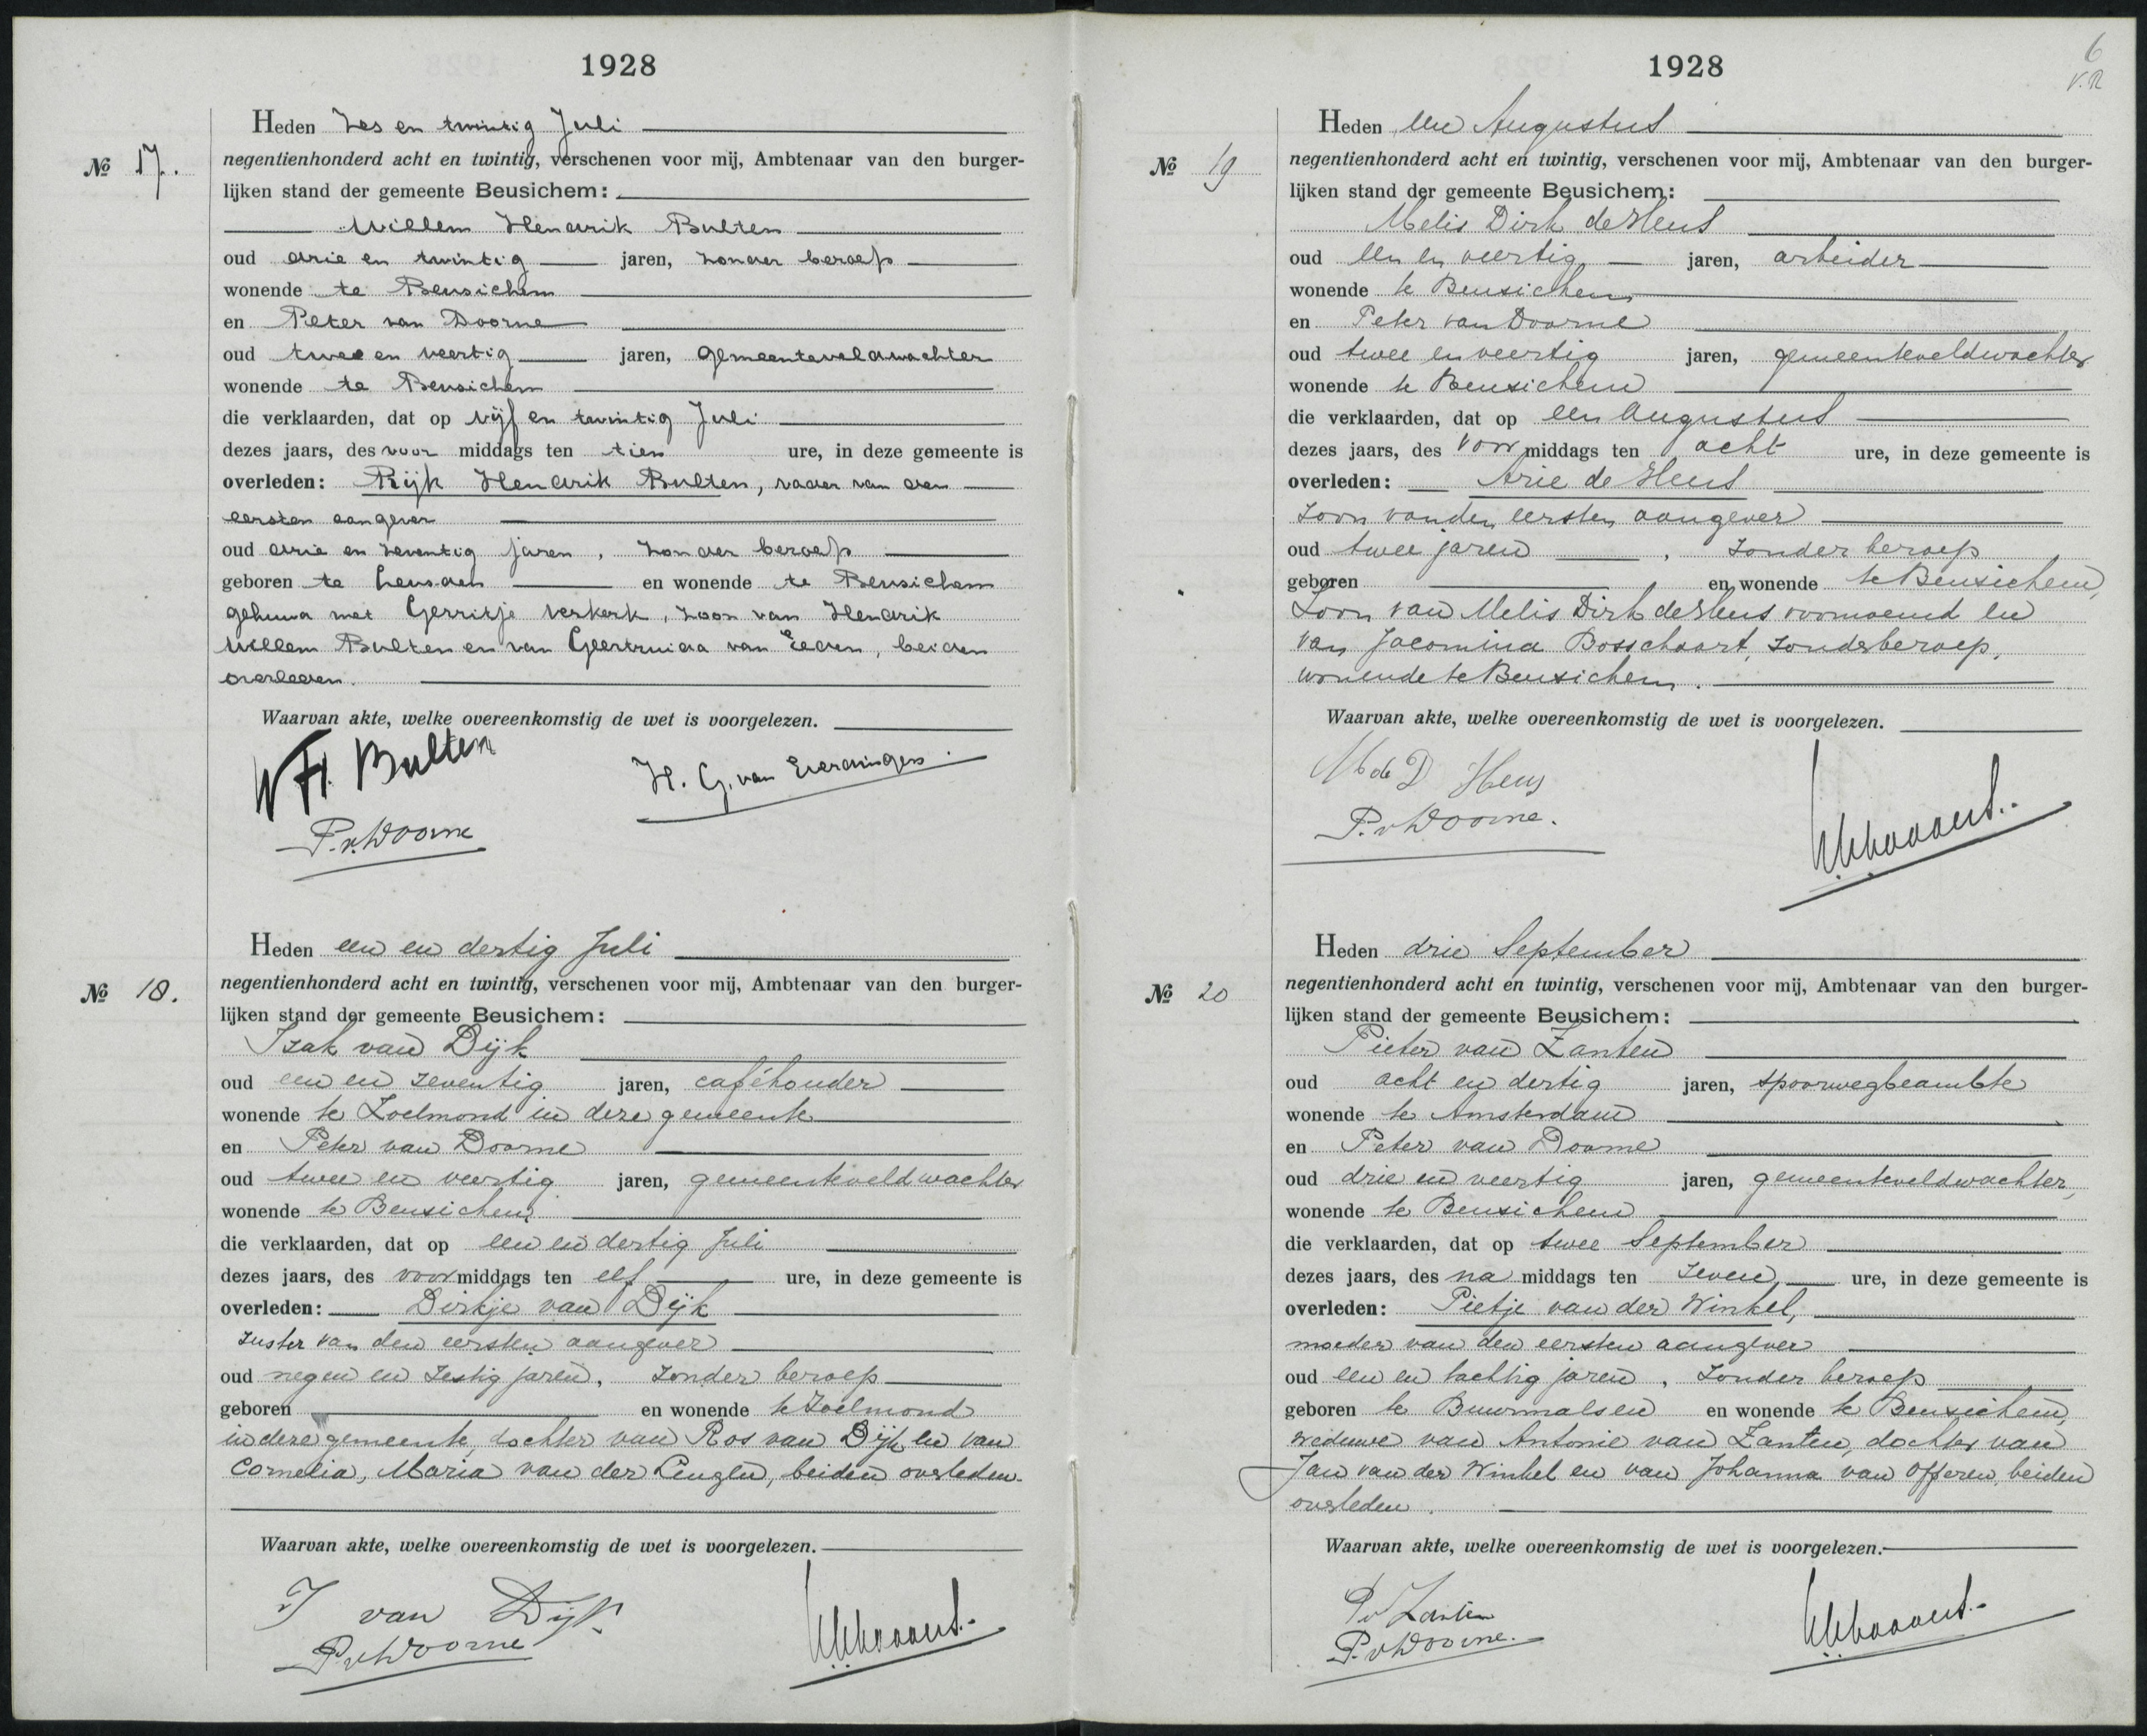 1928
Heden Zes en twintig Juli
No 17.
negentienhonderd acht en twintig, verschenen voor mij, Ambtenaar van den burger-
lijken stand der gemeente Beusichem:
Willem Hendrik Bulten
oud drie en twintig jaren, zonder beroep
wonende te Beusichem
en Peter van Doorne
oud twee en veertig jaren, gemeenteveldwachter
wonende te Beusichem
die verklaarden, dat op vijf en twintig Juli
dezes jaars, des voor middags ten tien ure, in deze gemeente is
overleden: Rijk Hendrik Bulten, vader van den
eersten aangever
oud drie en zeventig jaren, zonder beroep
geboren te Leusden en wonende te Beusichem
gehuwd met Gerritje Verkerk, zoon van Hendrik
Willem Bulten en van Geertruida van Eeden, beiden
overleden.
Waarvan akte, welke overeenkomstig de wet is voorgelezen.
W H. Bulten
H. G. van Everdingen
P. v. Doorne
Heden een en dertig Juli
No 18.
negentienhonderd acht en twintig, verschenen voor mij, Ambtenaar van den burger-
lijken stand der gemeente Beusichem:
Izak van Dijk
oud een en zeventig jaren, caféhouder
wonende te Zoelmond in deze gemeente
en Peter van Doorne
oud twee en veertig jaren, gemeenteveldwachter
wonende te Beusichem
die verklaarden, dat op een en dertig Juli
dezes jaars, des voor middags ten elf ure, in deze gemeente is
overleden: Dirkje van Dijk
zuster van den eersten aangever
oud negen en zestig jaren, zonder beroep
geboren en wonende te Zoelmond
in deze gemeente, dochter van Ros van Dijk en van
Cornelia, Maria van der Linglen, beiden overleden.
Waarvan akte, welke overeenkomstig de wet is voorgelezen.
I van Dijk
P. v Doorne
1928
6
V.R
Heden een Augustus
No 19
negentienhonderd acht en twintig, verschenen voor mij, Ambtenaar van den burger-
lijken stand der gemeente Beusichem:
Melis Dirk de Heus
oud een en veertig jaren, arbeider
wonende te Beusichem
en Peter van Doorne
oud twee en veertig jaren, gemeenteveldwachter
wonende te Beusichem
die verklaarden, dat op een Augustus
dezes jaars, des voor middags ten acht ure, in deze gemeente is
overleden: Arie de Heus
zoon van den eersten aangever
oud twee jaren, zonder beroep
geboren en wonende te Beusichem,
zoon van Melis Dirk de Heus voornoemd en
van Jacomina Bosschaart, zonder beroep,
wonende te Beusichem.
Waarvan akte, welke overeenkomstig de wet is voorgelezen.
M de D Heus
P. v Doorne.
Heden drie September
No 20
negentienhonderd acht en twintig, verschenen voor mij, Ambtenaar van den burger-
lijken stand der gemeente Beusichem:
Pieter van Zanten
oud acht en dertig jaren, spoorwegbeambte
wonende te Amsterdam
en Peter van Doorne
oud drie en veertig jaren, gemeenteveldwachter,
wonende te Beusichem
die verklaarden, dat op twee September
dezes jaars, des na middags ten zeven ure, in deze gemeente is
overleden: Pietje van der Winkel,
moeder van den eersten aangever
oud een en tachtig jaren, zonder beroep
geboren te Buurmalsen en wonende te Beusichem,
weduwe van Antonie van Zanten, dochter van
Jan van der Winkel en van Johanna van Offeren, beiden
overleden.
Waarvan akte, welke overeenkomstig de wet is voorgelezen.
P v Zanten
P. v Doorne.